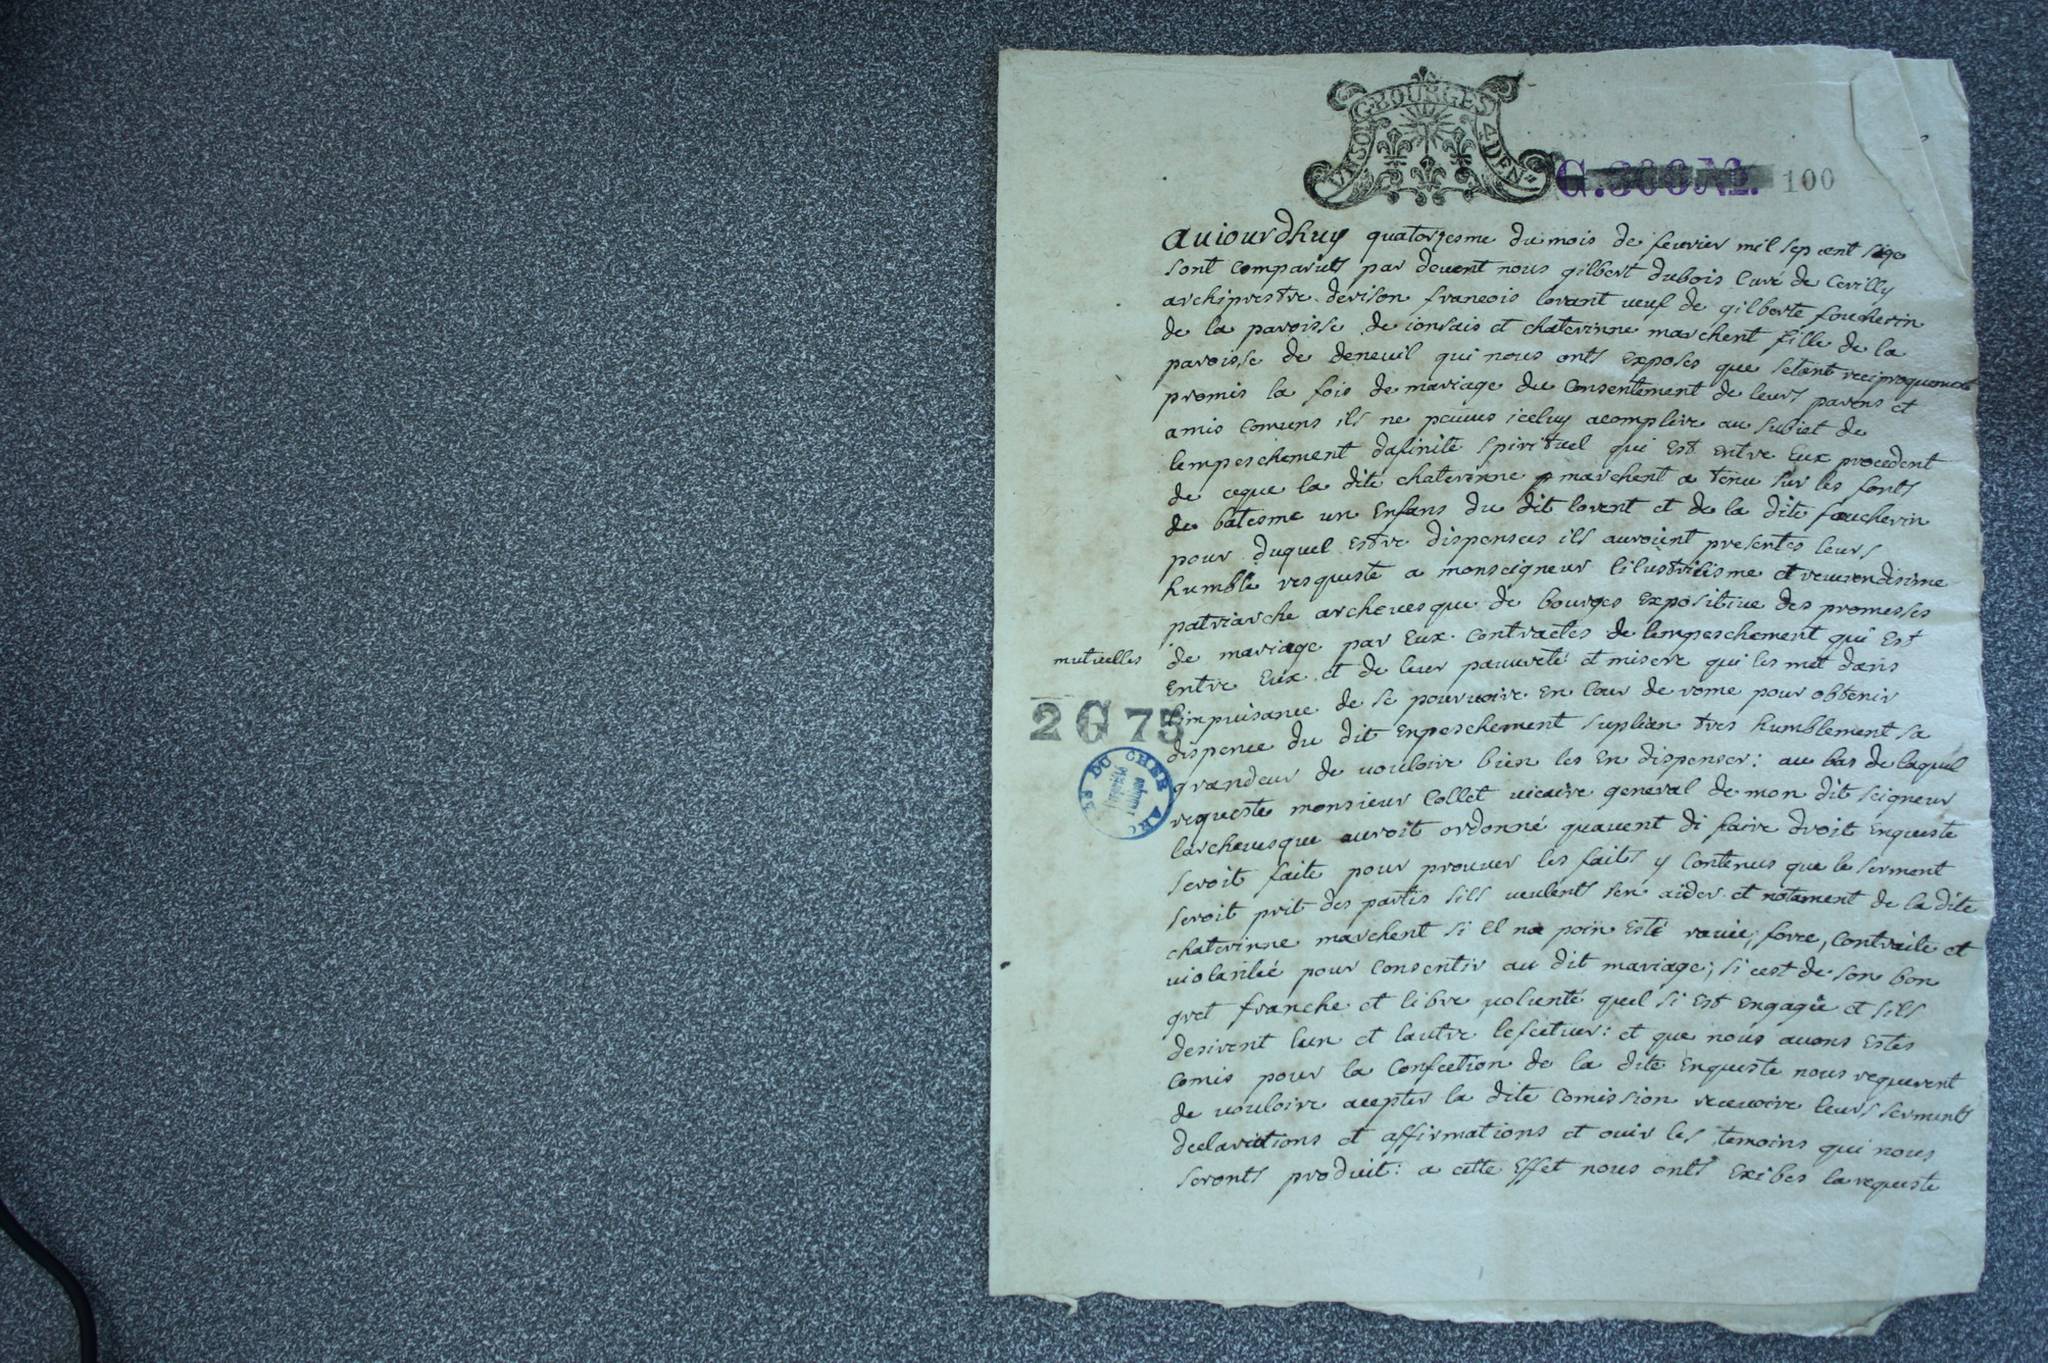 VN SOL G. BOURGES 4 DEN.
G.300 A2. 100
aujourdhuy quatorzesme du mois de feuvier mil sep cent saze
sont comparuts par devent nous gilbert dubois Curé de Cerilly
archiprestre derison francois lorant veuf de gilberte foucherin
de la paroisse de ionsais et chaterinne marchent fille de la
paroisse de deneuil qui nous onts exposes que setant reciproquement
promis la fois de mariage du consentement de leurs parens et
amis comuns ils ne peuvus iceluy acomplire au subiet de
lempeschement dafinité spirituel qui est entre eux procedent
de ceque la dite chaterinne marchent a tenu sur les fonts
de batesme un enfans du dit lorent et de la dite foucherin
pour duquel estre dispenses ils auroient presentes leurs
humble resqueste a monseigneur lilustrilisme et reuerendisime
patriarche archeuesque de bourges expositiue des promesses
mutuelles
de mariage par eux contractes de lempeschement qui est
entre eux et de leur pauureté et misere qui les met dans
limpuisance de se pouruoire en Cour de rome pour obtenir
2 G 75
dispence du dit enpeschement suplian tres humblement sa
grandeur de uouloire bien les en dispenser: au bas de laquel
ES DU CHER ARC
requeste monsieur Collet uicaire general de mon dit seigneur
larcheuesque auroit ordonné quauent di faire droit enqueste
seroit faite pour prouuer les faits y contenus que le serment
seroit prit des partis sils ueulents sen aider et notament de la dite
chaterinne marchent si el na poin esté rauie, force, contraite et
uiolantée pour consentir au dit mariage; si cest de son bon
gret franche et libre uolunté quel si est engagée et sils
desirent lun et lautre lefectuer: et que nous auons estes
comis pour la confection de la dite enqueste nous requerent
de uouloire acepter la dite comission receuoire leurs serments
declarations et affirmations et ouir les temoins qui nous
seronts produit: a cette effet nous onts exibes la requeste